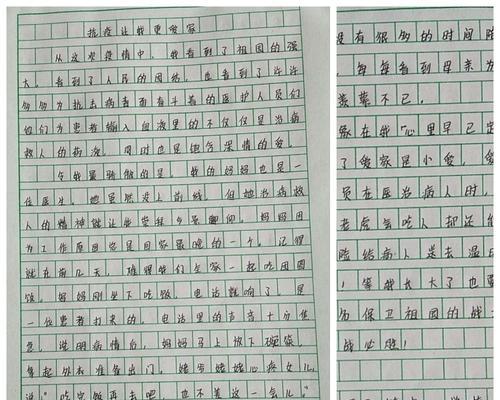 抗疫让我更爱家
从这次疫情中，我看到了祖国的强
大，看到了人民的团结，也看到了许许
多多为抗击病毒而奋斗着的医护人员们
他们为患者输入血液里的不仅仅是治病
救人的药液，同时也是饱含深情的爱。
令我最骄傲的是，我的妈妈也是一
位医生，她虽然没上前线，但她治病救
人的精神就让我
为工作原因总是回家最晚的一个。记得
就在前几天，难得我们全家一起吃团圆
饭，妈妈刚坐下吃饭，电话就响了，是
一位患者打来的，电话里的声音十分焦
急，说明病情后，妈妈马上放下碗筷，
拿起外衣准备出门，姥爷姥姥心疼女儿
说："吃完饭再去吧，也不差这一会儿。"
没有很多的时间陪
，每每看到母亲为
羡慕不已，
家在我心里早已
了爱家是小爱，
员在医治病人时，
老虎会吃人却还
险给病人
！等我长大了也要
为保卫祖国的战
战必胜！